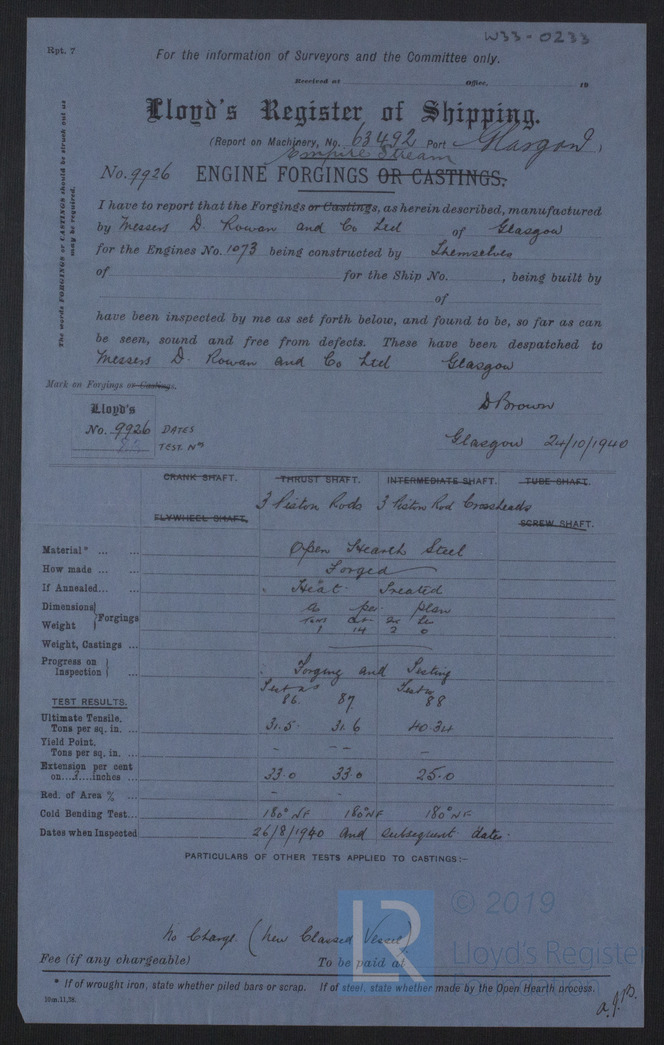 W33-0233
Rpt. 7
For the information of Surveyors and the Committee only.
Received at Office, 19
Lloyd's Register of Shipping.
(Report on Machinery, No. 63492 Port Glasgow.
Empire Stream
No. 9926 ENGINE FORGINGS OR CASTINGS.
The words FORGINGS or CASTINGS should be struck out as may be required.
I have to report that the Forgings or Castings, as herein described, manufactured
by Messrs D. Rowan and Co Ltd of Glasgow
for the Engines No. 1073 being constructed by Themselves
of for the Ship No. , being built by
of
have been inspected by me as set forth below, and found to be, so far as can
be seen, sound and free from defects. These have been despatched to
Messrs D. Rowan and Co Ltd Glasgow
Mark on Forgings or Castings.
Lloyd's
No. 9926 DATES
TEST. Nos
D Brown
Glasgow 24/10/1940
CRANK SHAFT. THRUST SHAFT. INTERMEDIATE SHAFT. TUBE SHAFT.
3 Piston Rods 3 Piston Rod Crossheads
FLYWHEEL SHAFT. SCREW SHAFT.
Material* ... ... Open Hearth Steel
How made ... ... Forged
If Annealed... ... Heat Treated
Dimensions } Forgings as per plan
Weight Tons Cwt Qr Lbs
1 14 2 0
Weight, Castings ...
Progress on Inspection } ... Forging and Testing
Test Nos Test No
TEST RESULTS. 86. 87 88
Ultimate Tensile, Tons per sq. in. ... 31.5 31.6 40.34
Yield Point, Tons per sq. in. ... - - - -
Extension per cent on...3...inches ... 33.0 33.0 25.0
Red. of Area % ... - -
Cold Bending Test... 180° NF 180° NF 180° NF
Dates when Inspected 26/8/1940 and subsequent dates.
PARTICULARS OF OTHER TESTS APPLIED TO CASTINGS:-
No Charge. (New Classed Vessel)
Fee (if any chargeable) To be paid at
* If of wrought iron, state whether piled bars or scrap. If of steel, state whether made by the Open Hearth process.
10m.11,38.
a.J.B.
LR
© 2019
Lloyd's Register